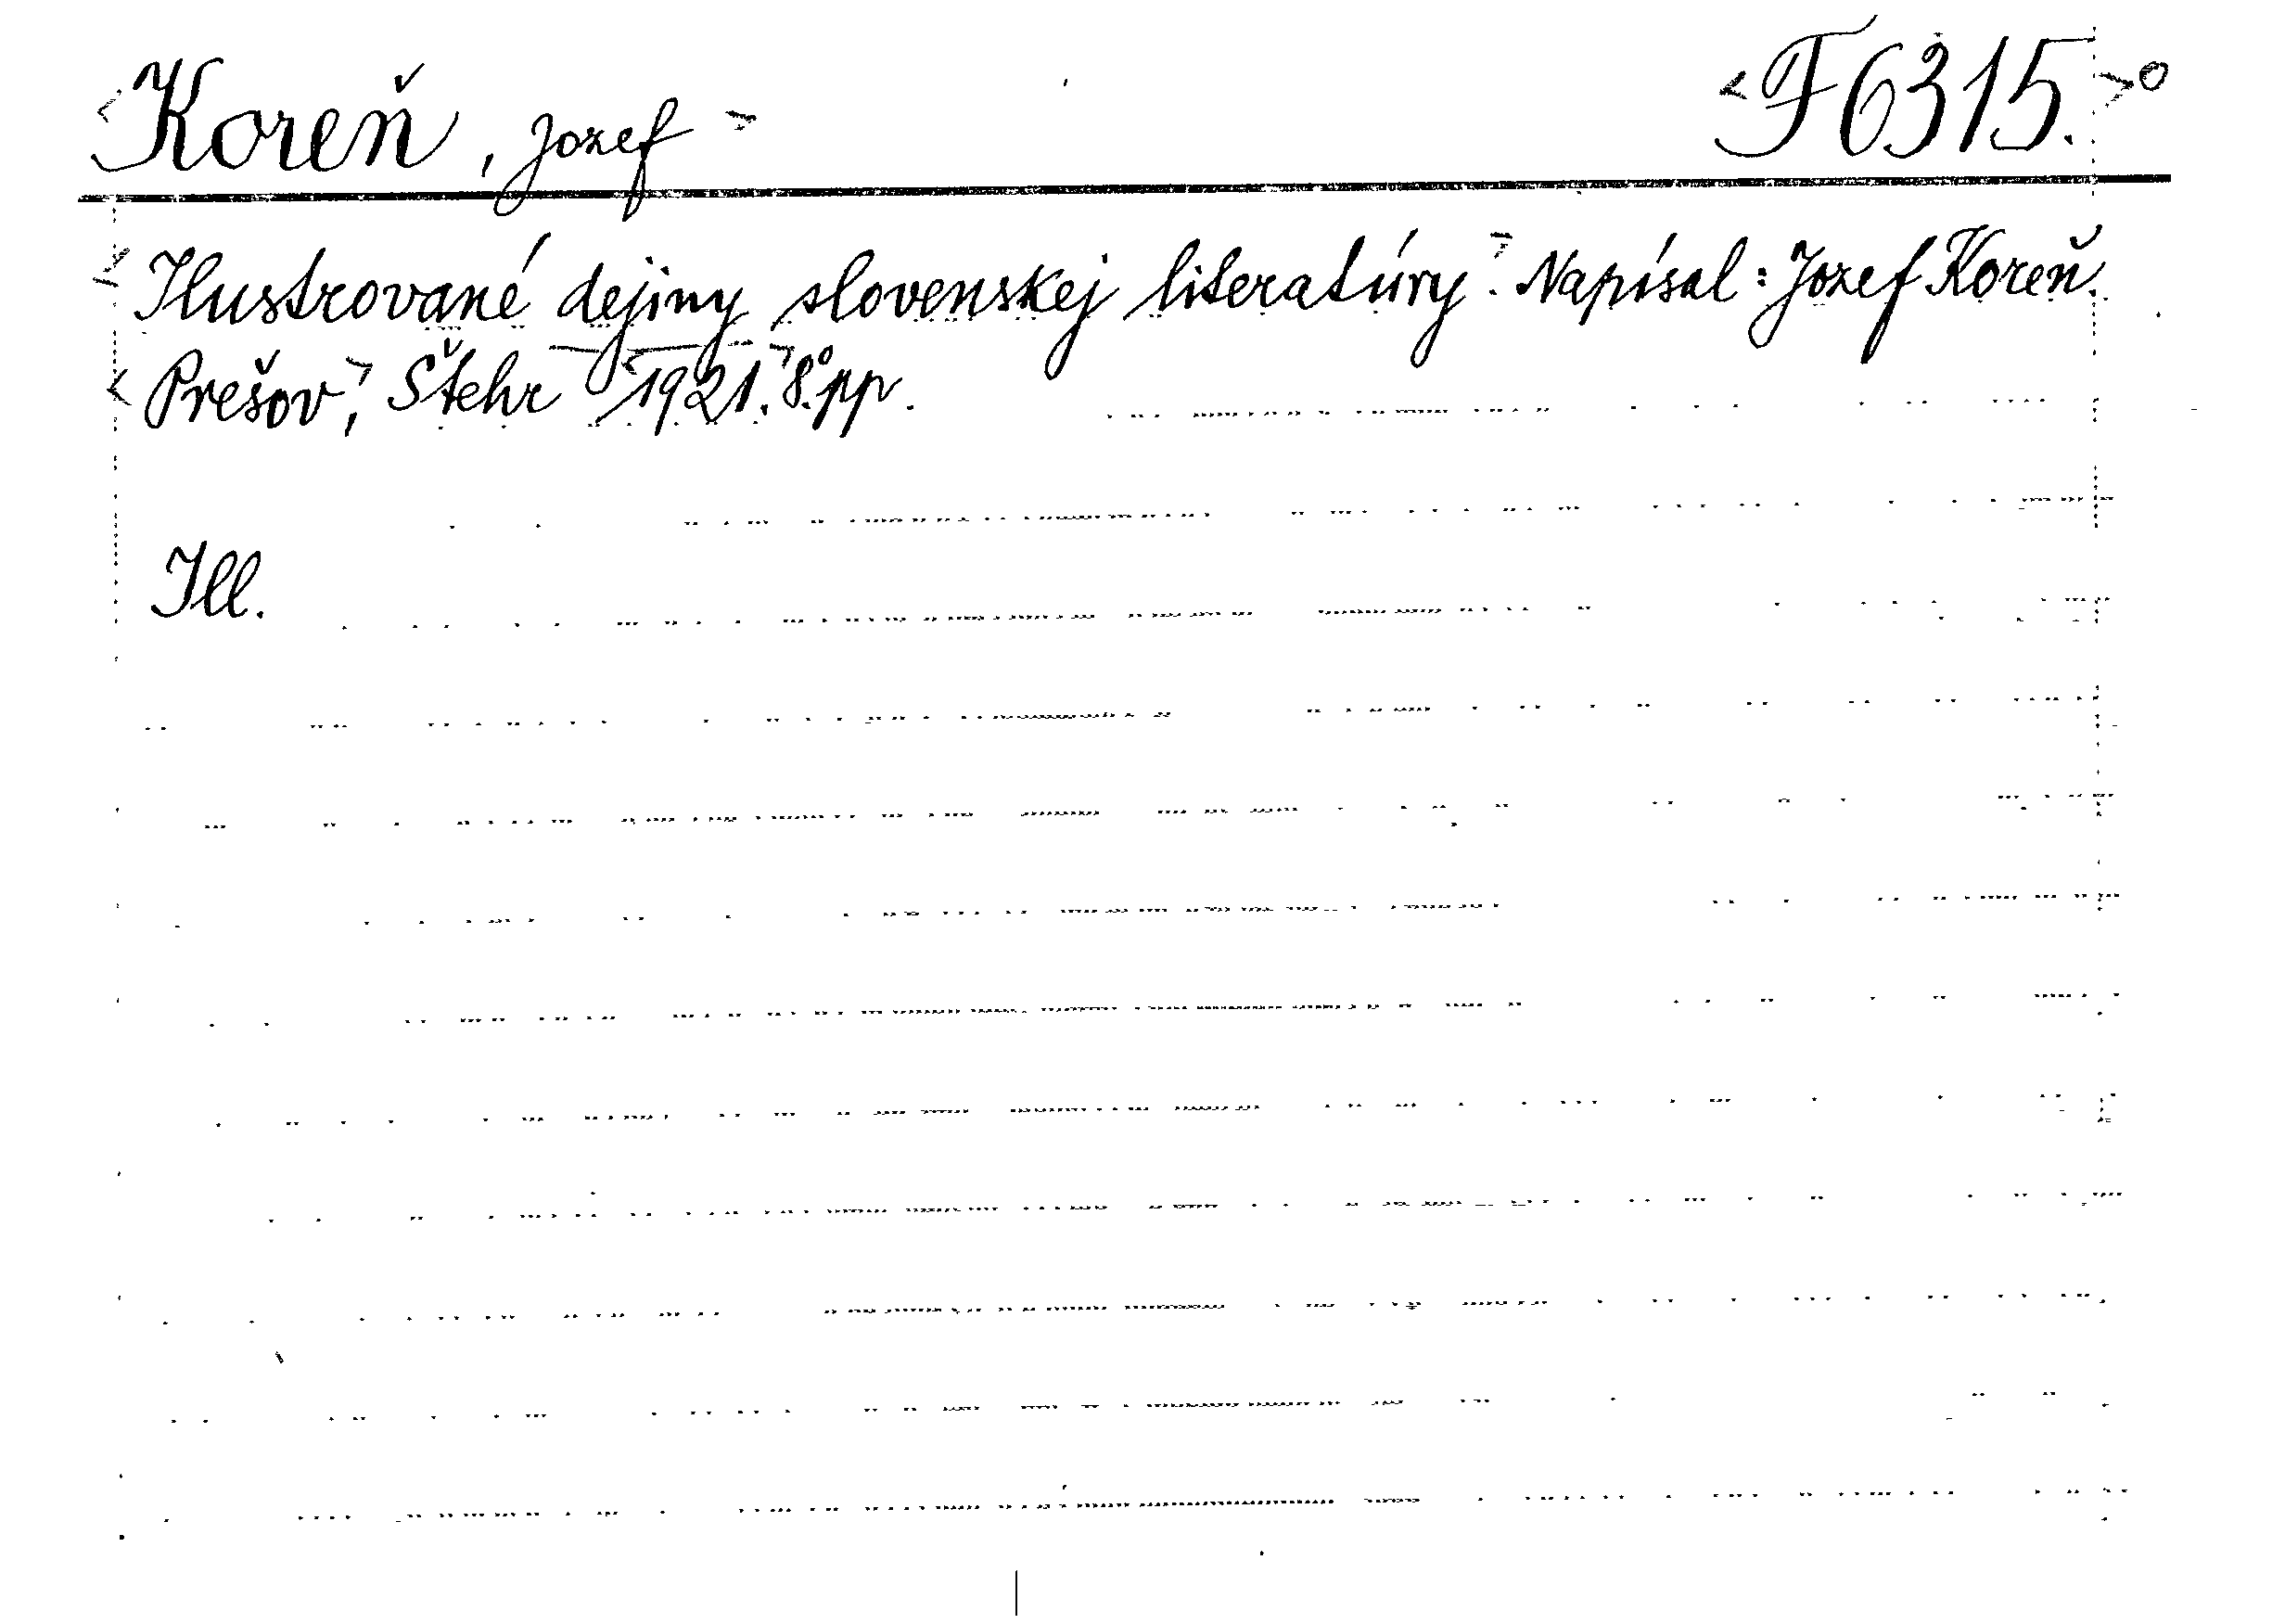 <Koreň, Jozef> <F6315.>o
<Ilustrované dejiny slovenskej literatúry>. Napísal: Jozef Koreň.
<Prešov>, Štehr <1921.> 8°. pp.
Ill.